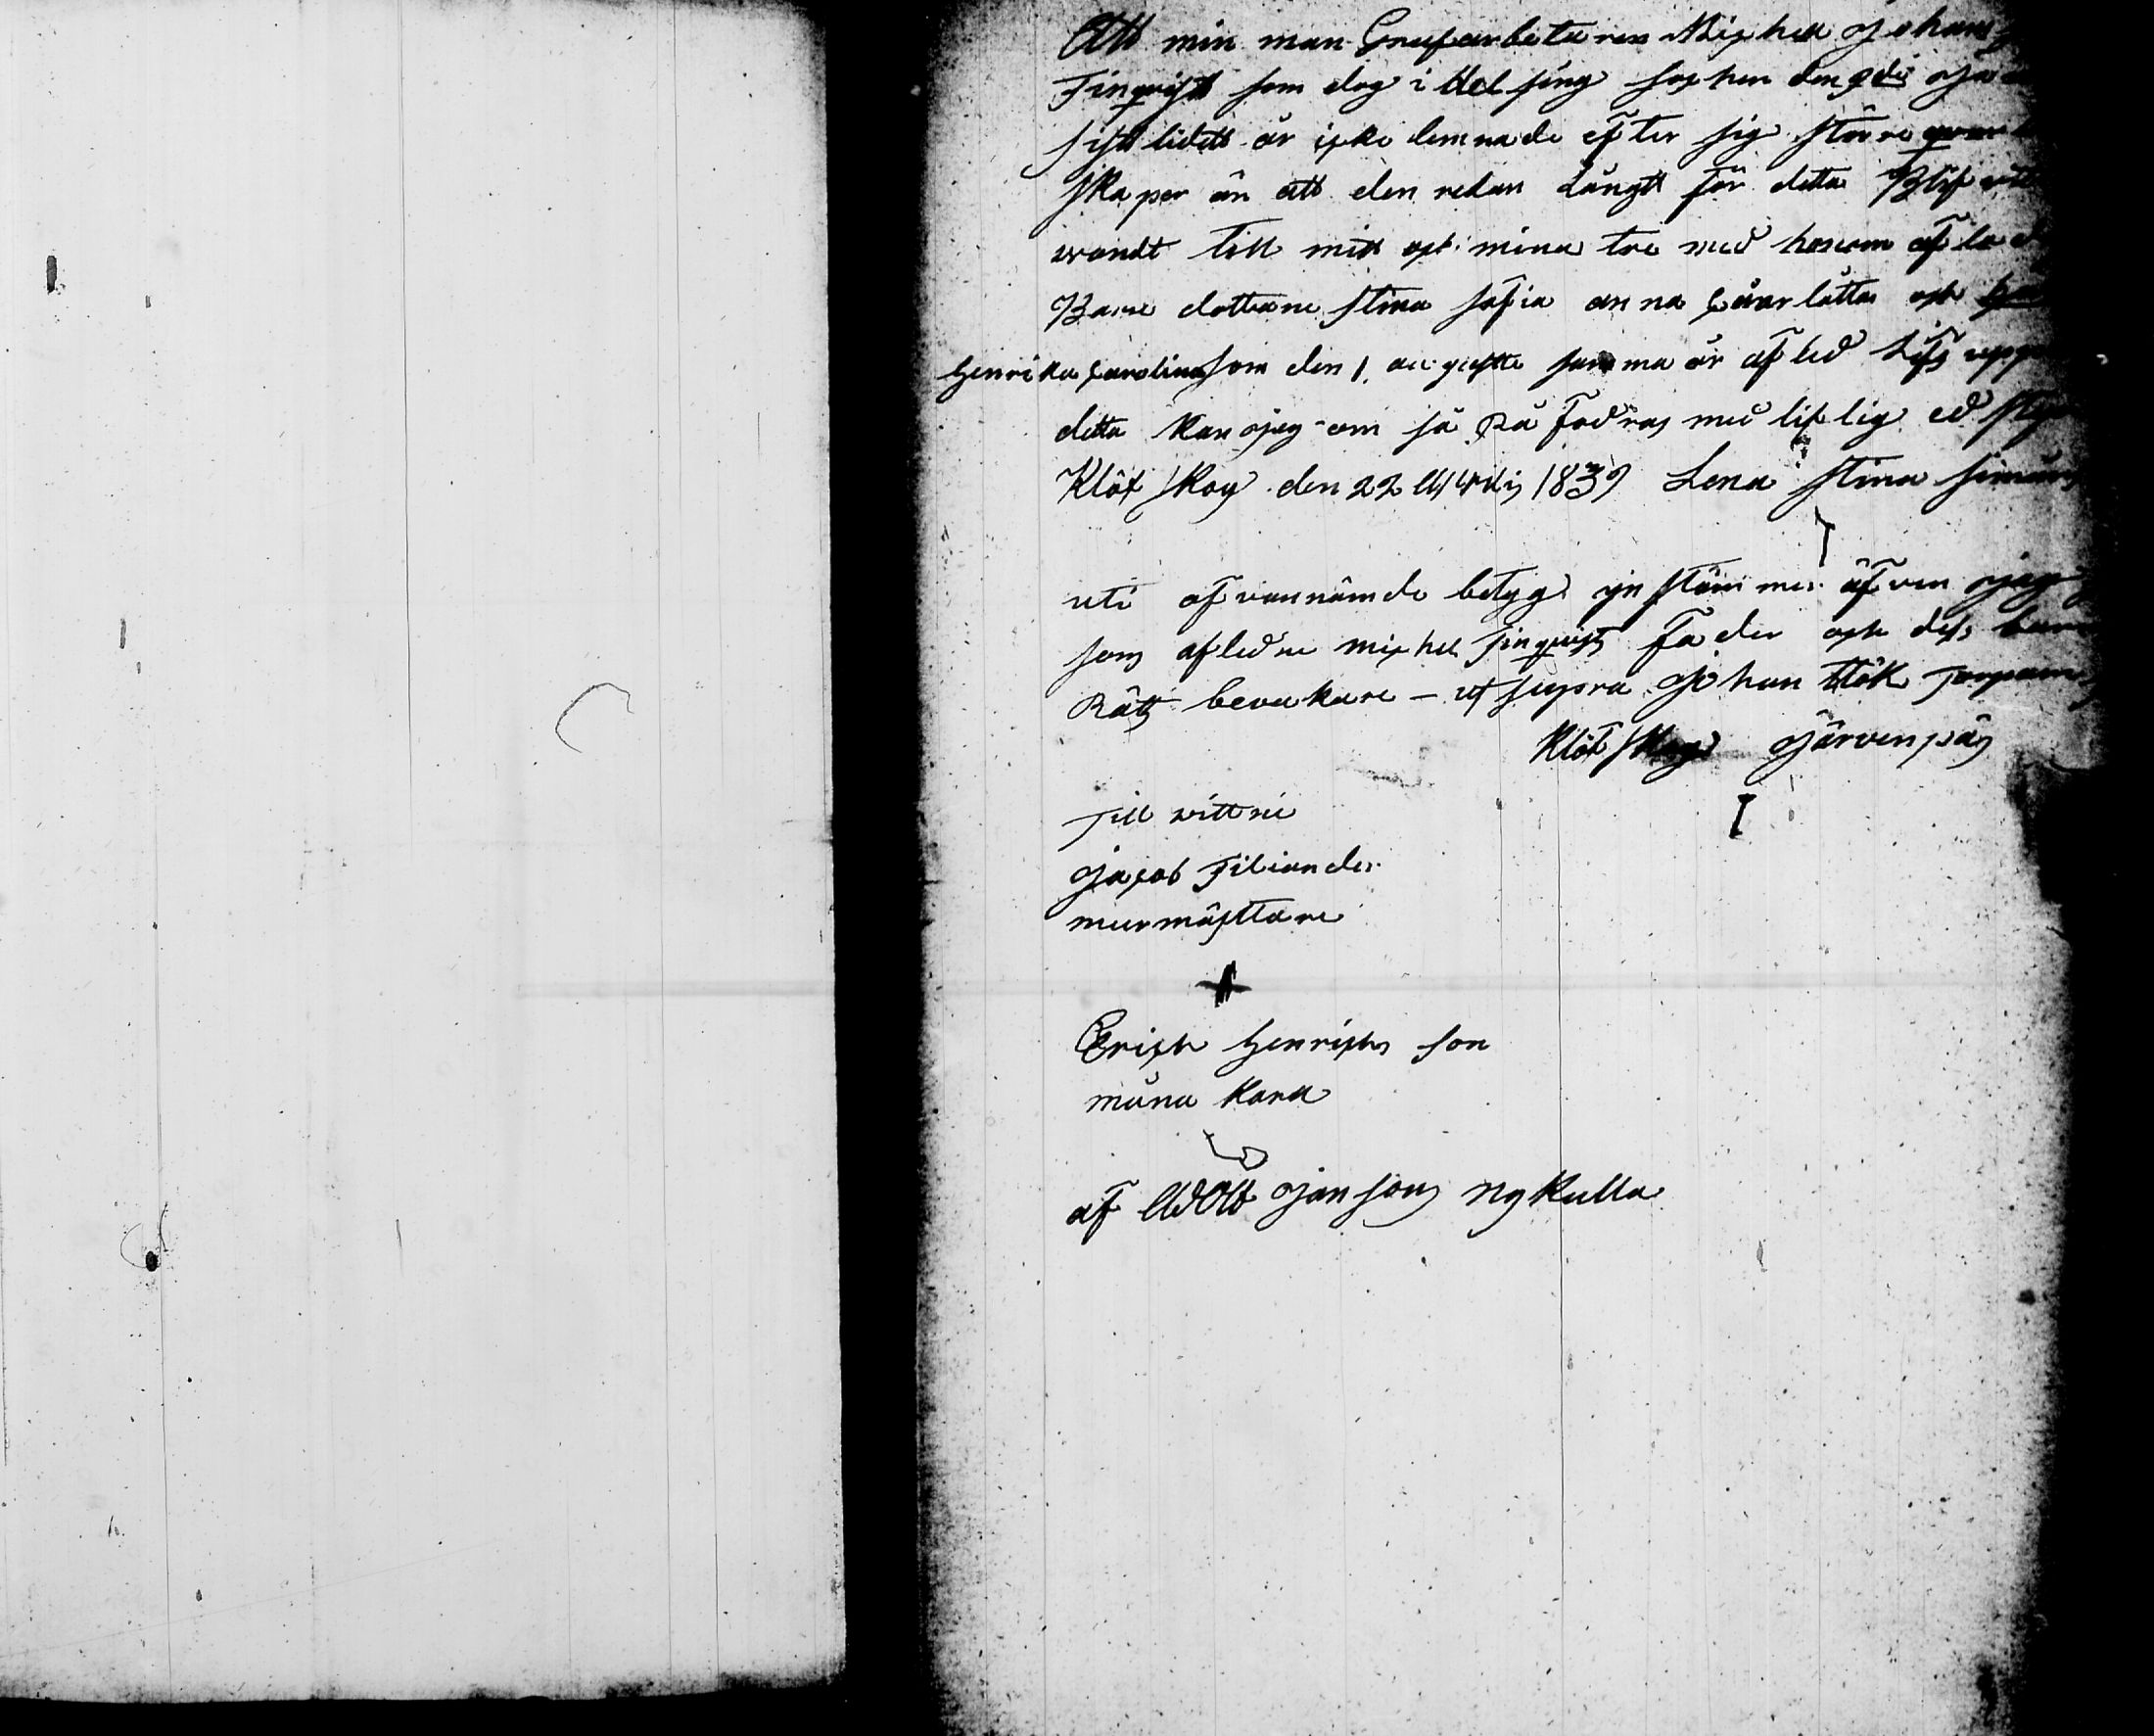 Att min man Grufarbetaren Michell Johans
Finqvist som dog i Helsing fos hen den 9dis Ja
sist lidett år icke lemnade efter sig större qvar
skaper än att den redan Långtt för detta Blifvitt
wandt Till mitt och mina tre med honom aflade
Barn dottrarne Stina sofia anna Carlåtta och
Henrika Carolina som den 1. augustti samma år afled Lifs uppe
detta kan jag om så på Fodras med liflig ed
Klöf skog den 22 1839 Lena Stina Simons
uti ofvannämde betyg instämmer äfven jag
som afledne michel Finqvists Fader och dess barns
Rätts bevakare – ut supra Johan Hök Torpare
Klöf skog Järvenpäs
Till vittne
Jacob Filiander
murmästtare
Erich Henrichs son
muna kara
af Adolf Jansons nykulla